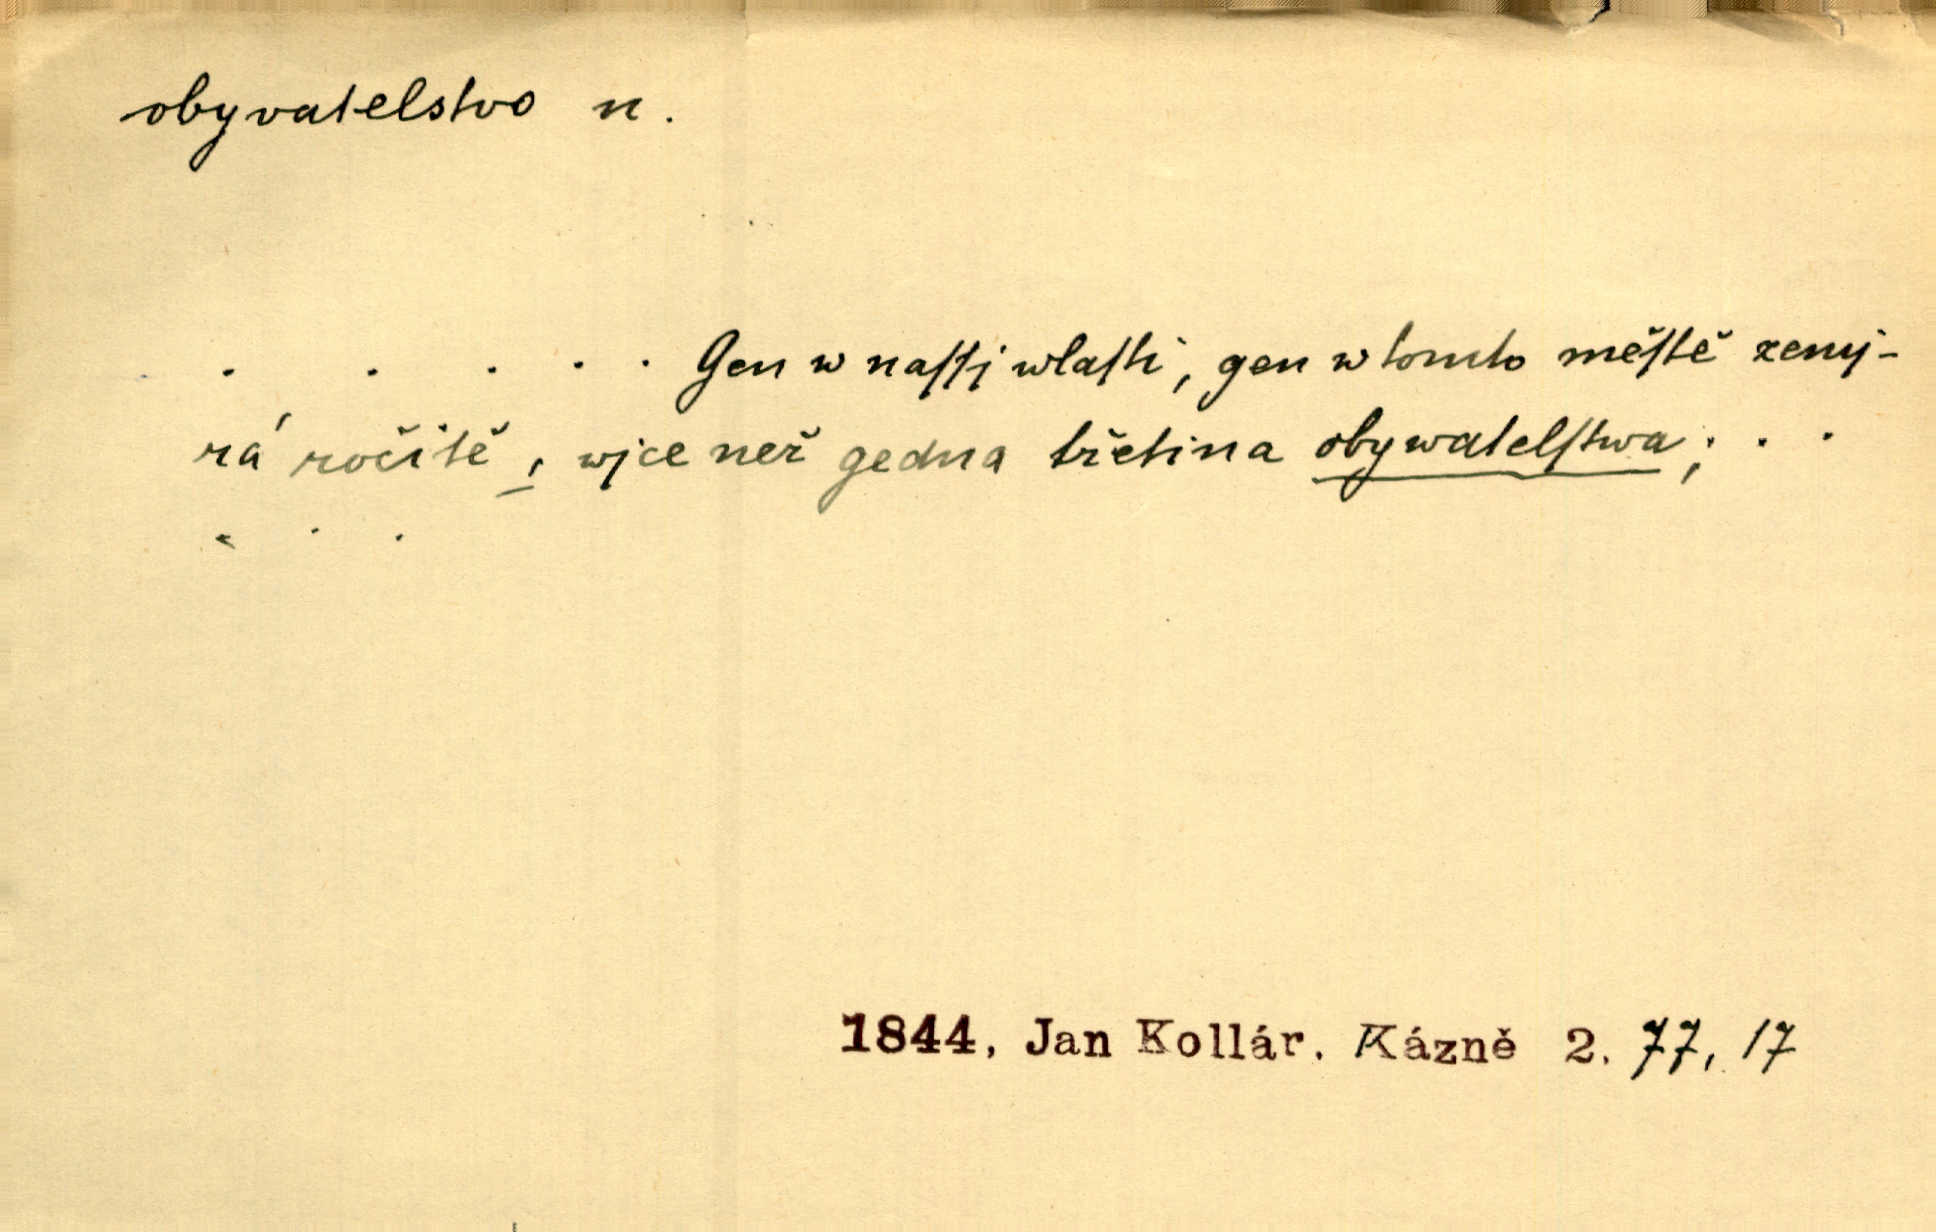 obyvatelstvo n.
. . . . . Gen w naſſj wlaſti, gen w tomto měſtě zemj-
rá ročitě, wjce než gedna třetina obywatelſtwa; . . .
. . .
1844, Jan Kollár. Kázně 2. 77, 17